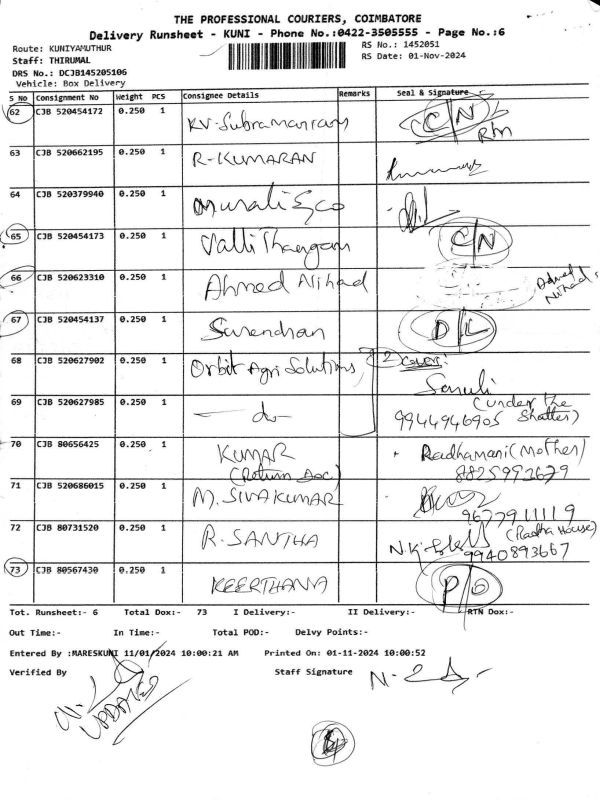 THE PROFESSIONAL COURIERS, COIMBATORE
Delivery Runsheet - KUNI - Phone No.:0422-3505555 - Page No.:6
Route: KUNIYAMUTHUR RS No.: 1452051
Staff: THIRUMAL RS Date: 01-Nov-2024
DRS No.: DCJB145205106
Vehicle: Box Delivery
S No Consignment No Weight PCS Consignee Details Remarks Seal & Signature
62 CJB 520454172 0.250 1 KV-Subramaniam C/N
63 CJB 520662195 0.250 1 R-KUMARAN
64 CJB 520379940 0.250 1 Murali & Co
65 CJB 520454173 0.250 1 Valli Thangam C/N
66 CJB 520623310 0.250 1 Ahmed Nihad Ahmed Nihad
67 CJB 520454137 0.250 1 Surendhan D/L
68 CJB 520627902 0.250 1 Orbit Agri Solutions, 2 Cover!
69 CJB 520627985 0.250 1 — do — (under the Shatter)
9944946905
70 CJB 80656425 0.250 1 KUMAR Radhamani (Mother)
(Return Doc) 8825993679
71 CJB 520686015 0.250 1 M. SIVAKUMAR
9677911119
72 CJB 80731520 0.250 1 R. SANTHA (Radha House)
9940893667
73 CJB 80567430 0.250 1 KEERTHANA P/O
Tot. Runsheet:- 6 Total Dox:- 73 I Delivery:- II Delivery:- RTN Dox:-
Out Time:- In Time:- Total POD:- Delvy Points:-
Entered By :MARESKUNI 11/01/2024 10:00:21 AM Printed On: 01-11-2024 10:00:52
Verified By Staff Signature
UPDATED